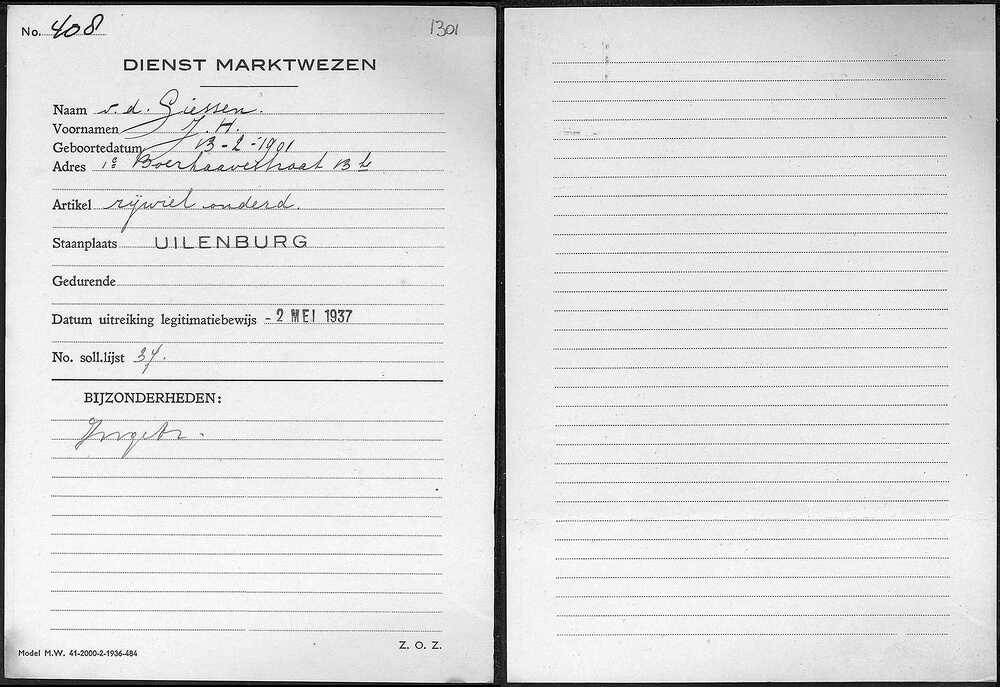 No. 408
1301
DIENST MARKTWEZEN
Naam v. d. Giessen.
Voornamen J. H.
Geboortedatum 13-2-1901
Adres 1e Boerhaavestraat 13
Artikel rijwiel onderd.
Staanplaats UILENBURG
Gedurende
Datum uitreiking legitimatiebewijs - 2 MEI 1937
No. soll.lijst 37.
BIJZONDERHEDEN:
Ingetr.
Model M.W. 41-2000-2-1936-484
Z. O. Z.